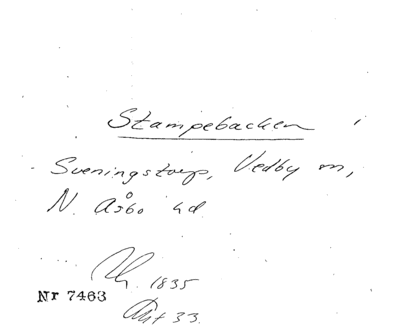 Stampebacken
Sveningstorp, Vedby sn,
N. Åsbo hd
1835
Nr 7463
Akt 33.